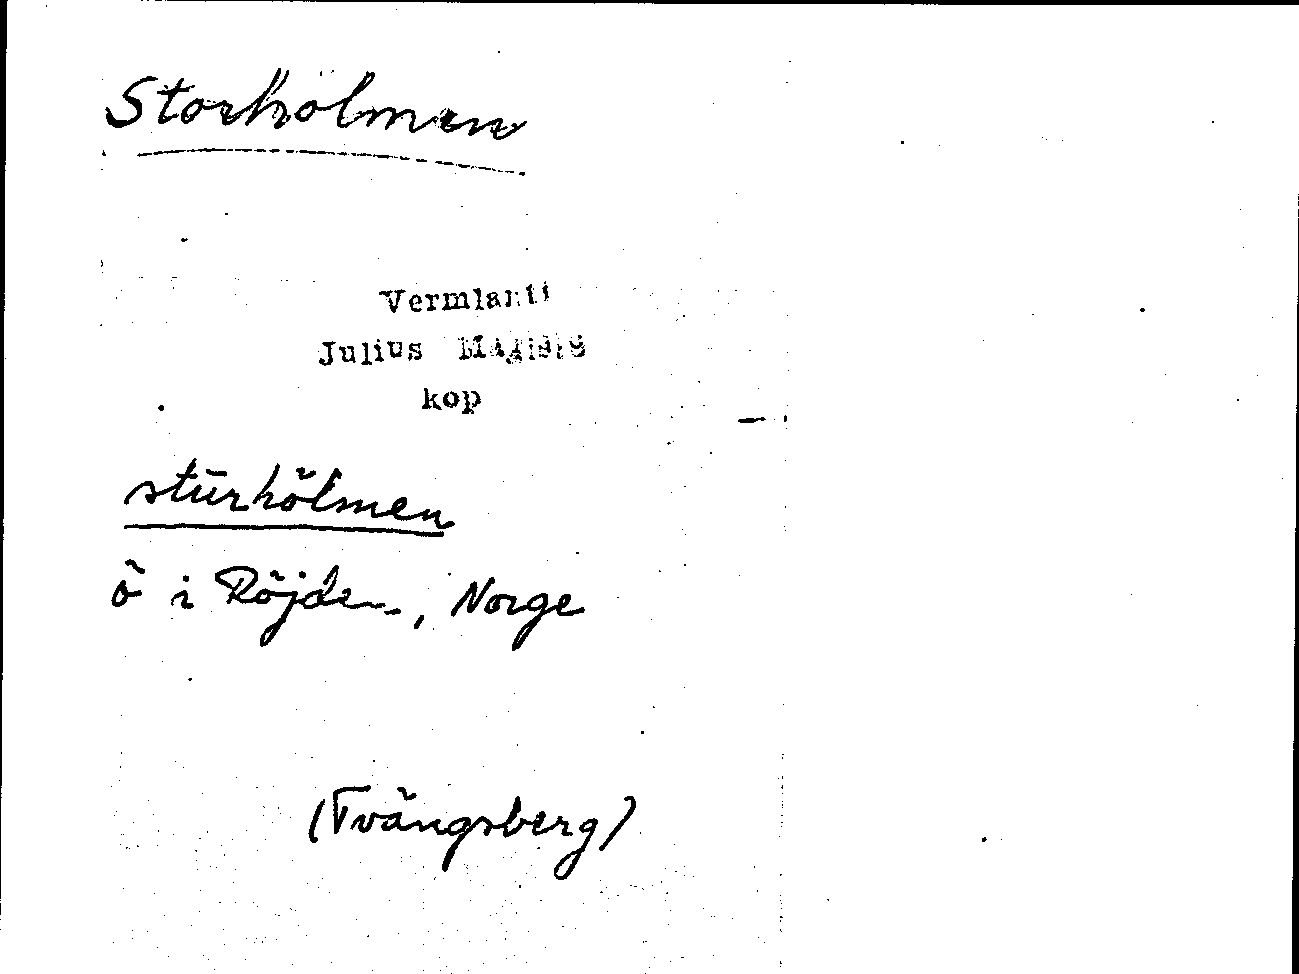 Storholmen
Vermlanti
Julius Mägiste
kop
stūrhȫlmen
ö i Röjden, Norge
(Tvängsberg)